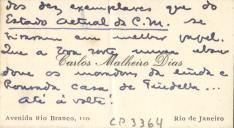 dos dez exemplares que do
Estado Actual da C.M. se
tiraram em melhor papel.
Que a sorte nunca aban
done os moradores da linda e
honrada casa de
Até á volta!
Carlos Malheiro Dias
Avenida Rio Branco, 110
Rio de Janeiro
CP 3364